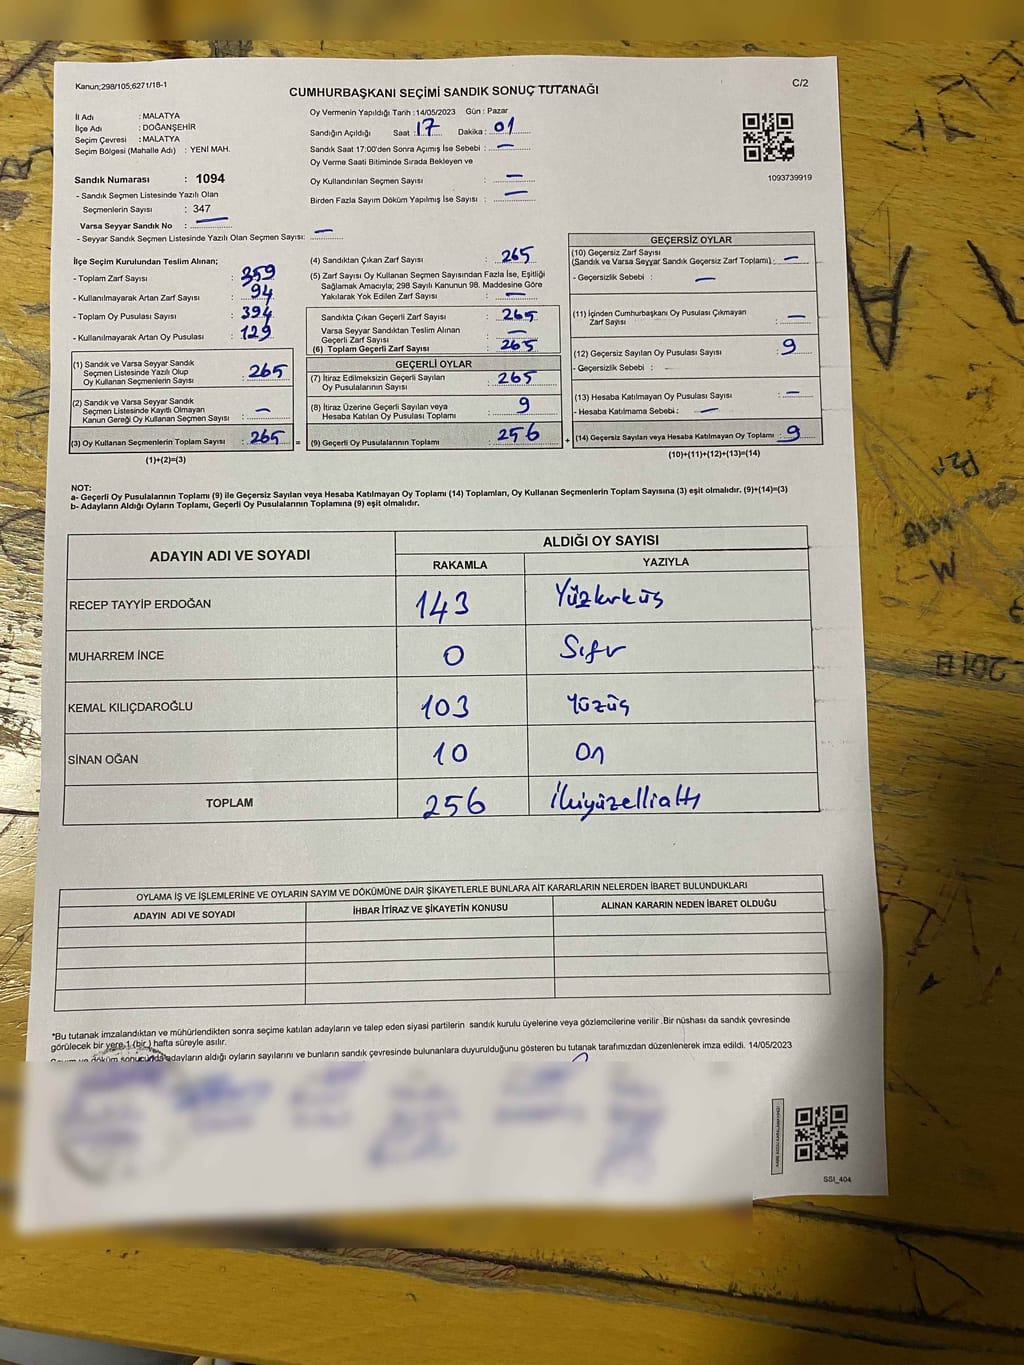 Kanun;298/105;6271/18-1
C/2
CUMHURBAŞKANI SEÇİMİ SANDIK SONUÇ TUTANAĞI
İl Adı : MALATYA
İlçe Adı : DOĞANŞEHİR
Seçim Çevresi : MALATYA
Seçim Bölgesi (Mahalle Adı) : YENİ MAH.
Oy Vermenin Yapıldığı Tarih :14/05/2023 Gün : Pazar
Sandığın Açıldığı Saat : 17 Dakika : 01
Sandık Saat 17:00'den Sonra Açımış İse Sebebi : —
Oy Verme Saati Bitiminde Sırada Bekleyen ve
Oy Kullandırılan Seçmen Sayısı : —
Birden Fazla Sayım Döküm Yapılmış İse Sayısı : —
1093739919
Sandık Numarası : 1094
- Sandık Seçmen Listesinde Yazılı Olan
Seçmenlerin Sayısı : 347
Varsa Seyyar Sandık No : —
- Seyyar Sandık Seçmen Listesinde Yazılı Olan Seçmen Sayısı: —
İlçe Seçim Kurulundan Teslim Alınan;
- Toplam Zarf Sayısı : 359
- Kullanılmayarak Artan Zarf Sayısı : 94
- Toplam Oy Pusulası Sayısı : 394
- Kullanılmayarak Artan Oy Pusulası : 129
(1) Sandık ve Varsa Seyyar Sandık
Seçmen Listesinde Yazılı Olup
Oy Kullanan Seçmenlerin Sayısı : 265
(2) Sandık ve Varsa Seyyar Sandık
Seçmen Listesinde Kayıtlı Olmayan
Kanun Gereği Oy Kullanan Seçmen Sayısı : —
(3) Oy Kullanan Seçmenlerin Toplam Sayısı : 265 =
(1)+(2)=(3)
(4) Sandıktan Çıkan Zarf Sayısı : 265
(5) Zarf Sayısı Oy Kullanan Seçmen Sayısından Fazla İse, Eşitliği
Sağlamak Amacıyla; 298 Sayılı Kanunun 98. Maddesine Göre
Yakılarak Yok Edilen Zarf Sayısı : —
Sandıkta Çıkan Geçerli Zarf Sayısı : 265
Varsa Seyyar Sandıktan Teslim Alınan
Geçerli Zarf Sayısı : —
(6) Toplam Geçerli Zarf Sayısı : 265
GEÇERLİ OYLAR
(7) İtiraz Edilmeksizin Geçerli Sayılan
Oy Pusulalarının Sayısı : 265
(8) İtiraz Üzerine Geçerli Sayılan veya
Hesaba Katılan Oy Pusulası Toplamı : 9
(9) Geçerli Oy Pusulalarının Toplamı : 256 +
GEÇERSİZ OYLAR
(10) Geçersiz Zarf Sayısı
(Sandık ve Varsa Seyyar Sandık Geçersiz Zarf Toplamı) : —
- Geçersizlik Sebebi : —
(11) İçinden Cumhurbaşkanı Oy Pusulası Çıkmayan
Zarf Sayısı : —
(12) Geçersiz Sayılan Oy Pusulası Sayısı : 9
- Geçersizlik Sebebi :
(13) Hesaba Katılmayan Oy Pusulası Sayısı : —
- Hesaba Katılmama Sebebi : —
(14) Geçersiz Sayılan veya Hesaba Katılmayan Oy Toplamı : 9
(10)+(11)+(12)+(13)=(14)
NOT:
a- Geçerli Oy Pusulalarının Toplamı (9) ile Geçersiz Sayılan veya Hesaba Katılmayan Oy Toplamı (14) Toplamları, Oy Kullanan Seçmenlerin Toplam Sayısına (3) eşit olmalıdır. (9)+(14)=(3)
b- Adayların Aldığı Oyların Toplamı, Geçerli Oy Pusulalarının Toplamına (9) eşit olmalıdır.
ADAYIN ADI VE SOYADI
ALDIĞI OY SAYISI
RAKAMLA YAZIYLA
RECEP TAYYİP ERDOĞAN 143 Yüzkırküç
MUHARREM İNCE 0 Sıfır
KEMAL KILIÇDAROĞLU 103 Yüzüç
SİNAN OĞAN 10 On
TOPLAM 256 İkiyüzellialtı
OYLAMA İŞ VE İŞLEMLERİNE VE OYLARIN SAYIM VE DÖKÜMÜNE DAİR ŞİKAYETLERLE BUNLARA AİT KARARLARIN NELERDEN İBARET BULUNDUKLARI
ADAYIN ADI VE SOYADI İHBAR İTİRAZ VE ŞİKAYETİN KONUSU ALINAN KARARIN NEDEN İBARET OLDUĞU
*Bu tutanak imzalandıktan ve mühürlendikten sonra seçime katılan adayların ve talep eden siyasi partilerin sandık kurulu üyelerine veya gözlemcilerine verilir .Bir nüshası da sandık çevresinde
görülecek bir yere 1 (bir ) hafta süreyle asılır.
Sayım ve döküm sonucunda adayların aldığı oyların sayılarını ve bunların sandık çevresinde bulunanlara duyurulduğunu gösteren bu tutanak tarafımızdan düzenlenerek imza edildi. 14/05/2023
SSI_404